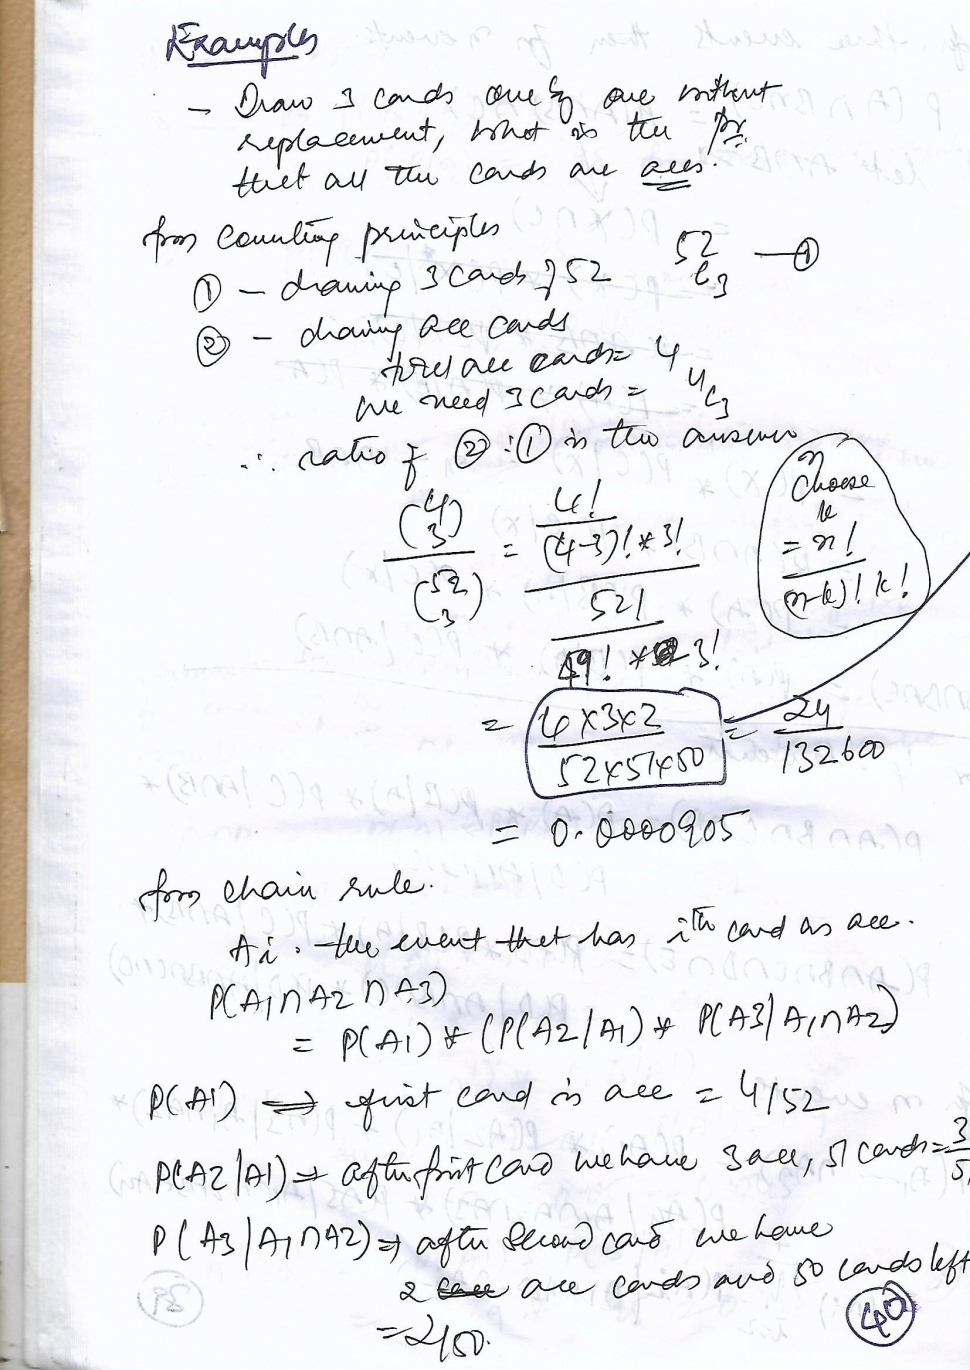 Examples
- Draw 3 cards one by one without
replacement, what is the pr.
that all the cards are aces.
from counting principles
① - drawing 3 cards of 52   52C3 —①
② - drawing ace cards
total ace cards = 4
we need 3 cards = 4C3
∴ ratio of ② : ① is the answer
(4 3) / (52 3) = 4! / (4-3)! * 3! / 52! / 49! * 3!
n
choose
k
= n!
(n-k)! k!
= 4x3x2 / 52x51x50 = 24 / 132600
= 0.0000905
from chain rule.
Ai. the event that has ith card as ace.
P(A1∩A2∩A3)
= P(A1) * (P(A2/A1) * P(A3/A1∩A2)
P(A1) ⇒ first card is ace = 4/52
P(A2/A1) ⇒ after first card we have 3 ace, 51 cards = 3/5
P(A3/A1∩A2) ⇒ after second card we have
2 ace cards and 50 cards left
= 2/50.
40
39